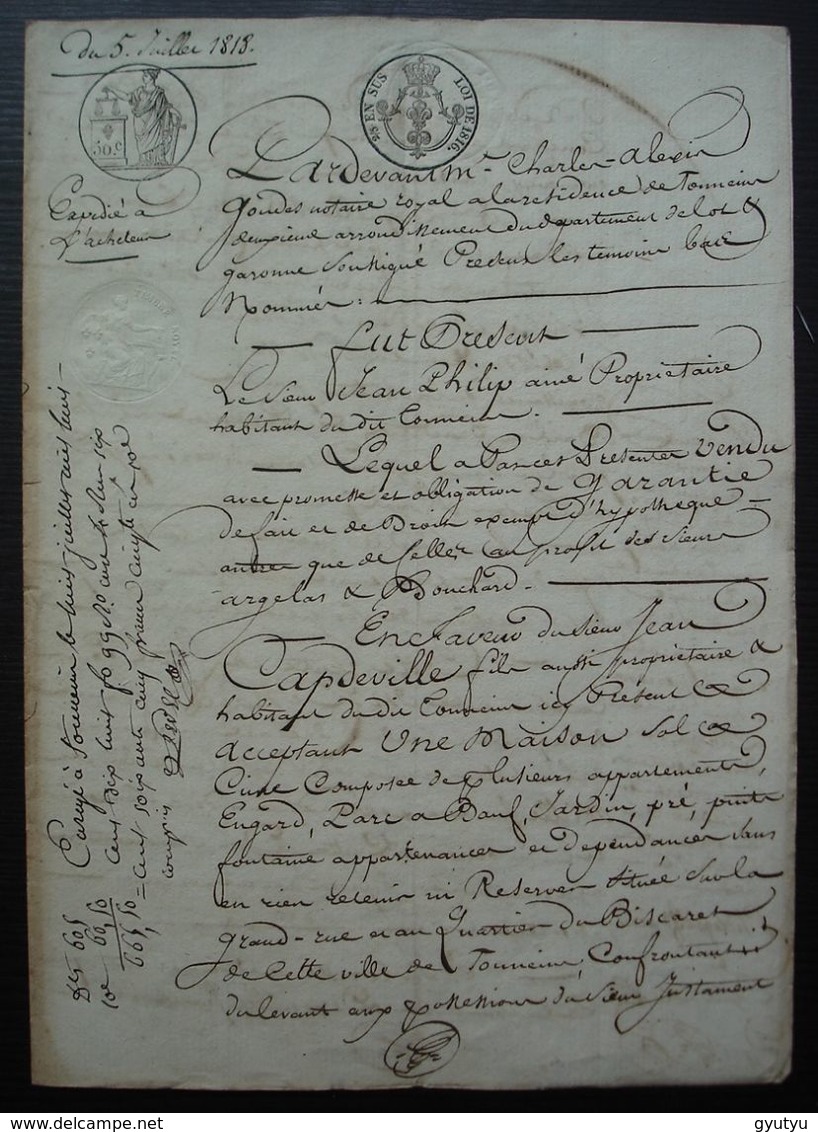 Du 5. Juillet 1818.
50 c
25 EN SUS LOI DE 1816.
Expédié à
L'acheteur
Pardevant Me Charles-Alexis
Goudes notaire royal a la residence de Tonneins
deuxieme arrondissement du departement de lot &
garonne Soussigné Presens les temoins bas
Nommés :
fut Present
Le Sieur Jean Philip ainé Proprietaire
habitant du dit Tonneins.
Lequel a Par ces Presentes Vendu
avec promesse et obligation de garantie
de fait et de Droit exempt d'hypotheque
autres que de Celles au profit des Sieurs
argelas & Bouchard.
En faveur du Sieur Jean
Capdeville fils aussi proprietaire &
habitant du dit Tonneins icy Présent &
acceptant Une Maison Sol &
Cime Composée de plusieurs appartements,
Engard, Parc a Bœuf, Jardin, pré, puits
fontaine appartenances et dependances sans
en rien retenir ni Reserver Située Sur la
grand-rue et au Quartier du Biscaret
de Cette ville de Tonneins Confrontant
du levant aux possessions du Sieur Justament
Enregé à Tonneins le huit juillet mil huit
cent dix huit fo 99 Ro
cent soixante cinq francs cinqte
compris le
605
10e 60,50
665,50
gyutyu